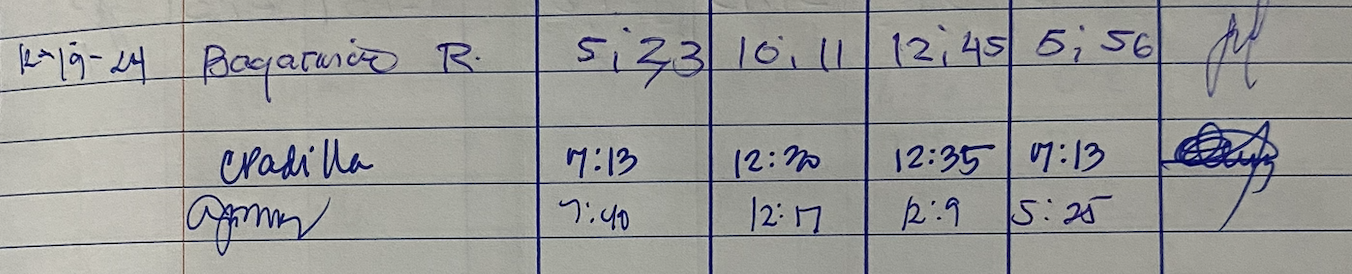 12-19-24 Bagatnico R. 5:23 10:11 12:45 5:56
cradilla 7:13 12:30 12:35 7:13
7:40 12:17 12:9 5:25